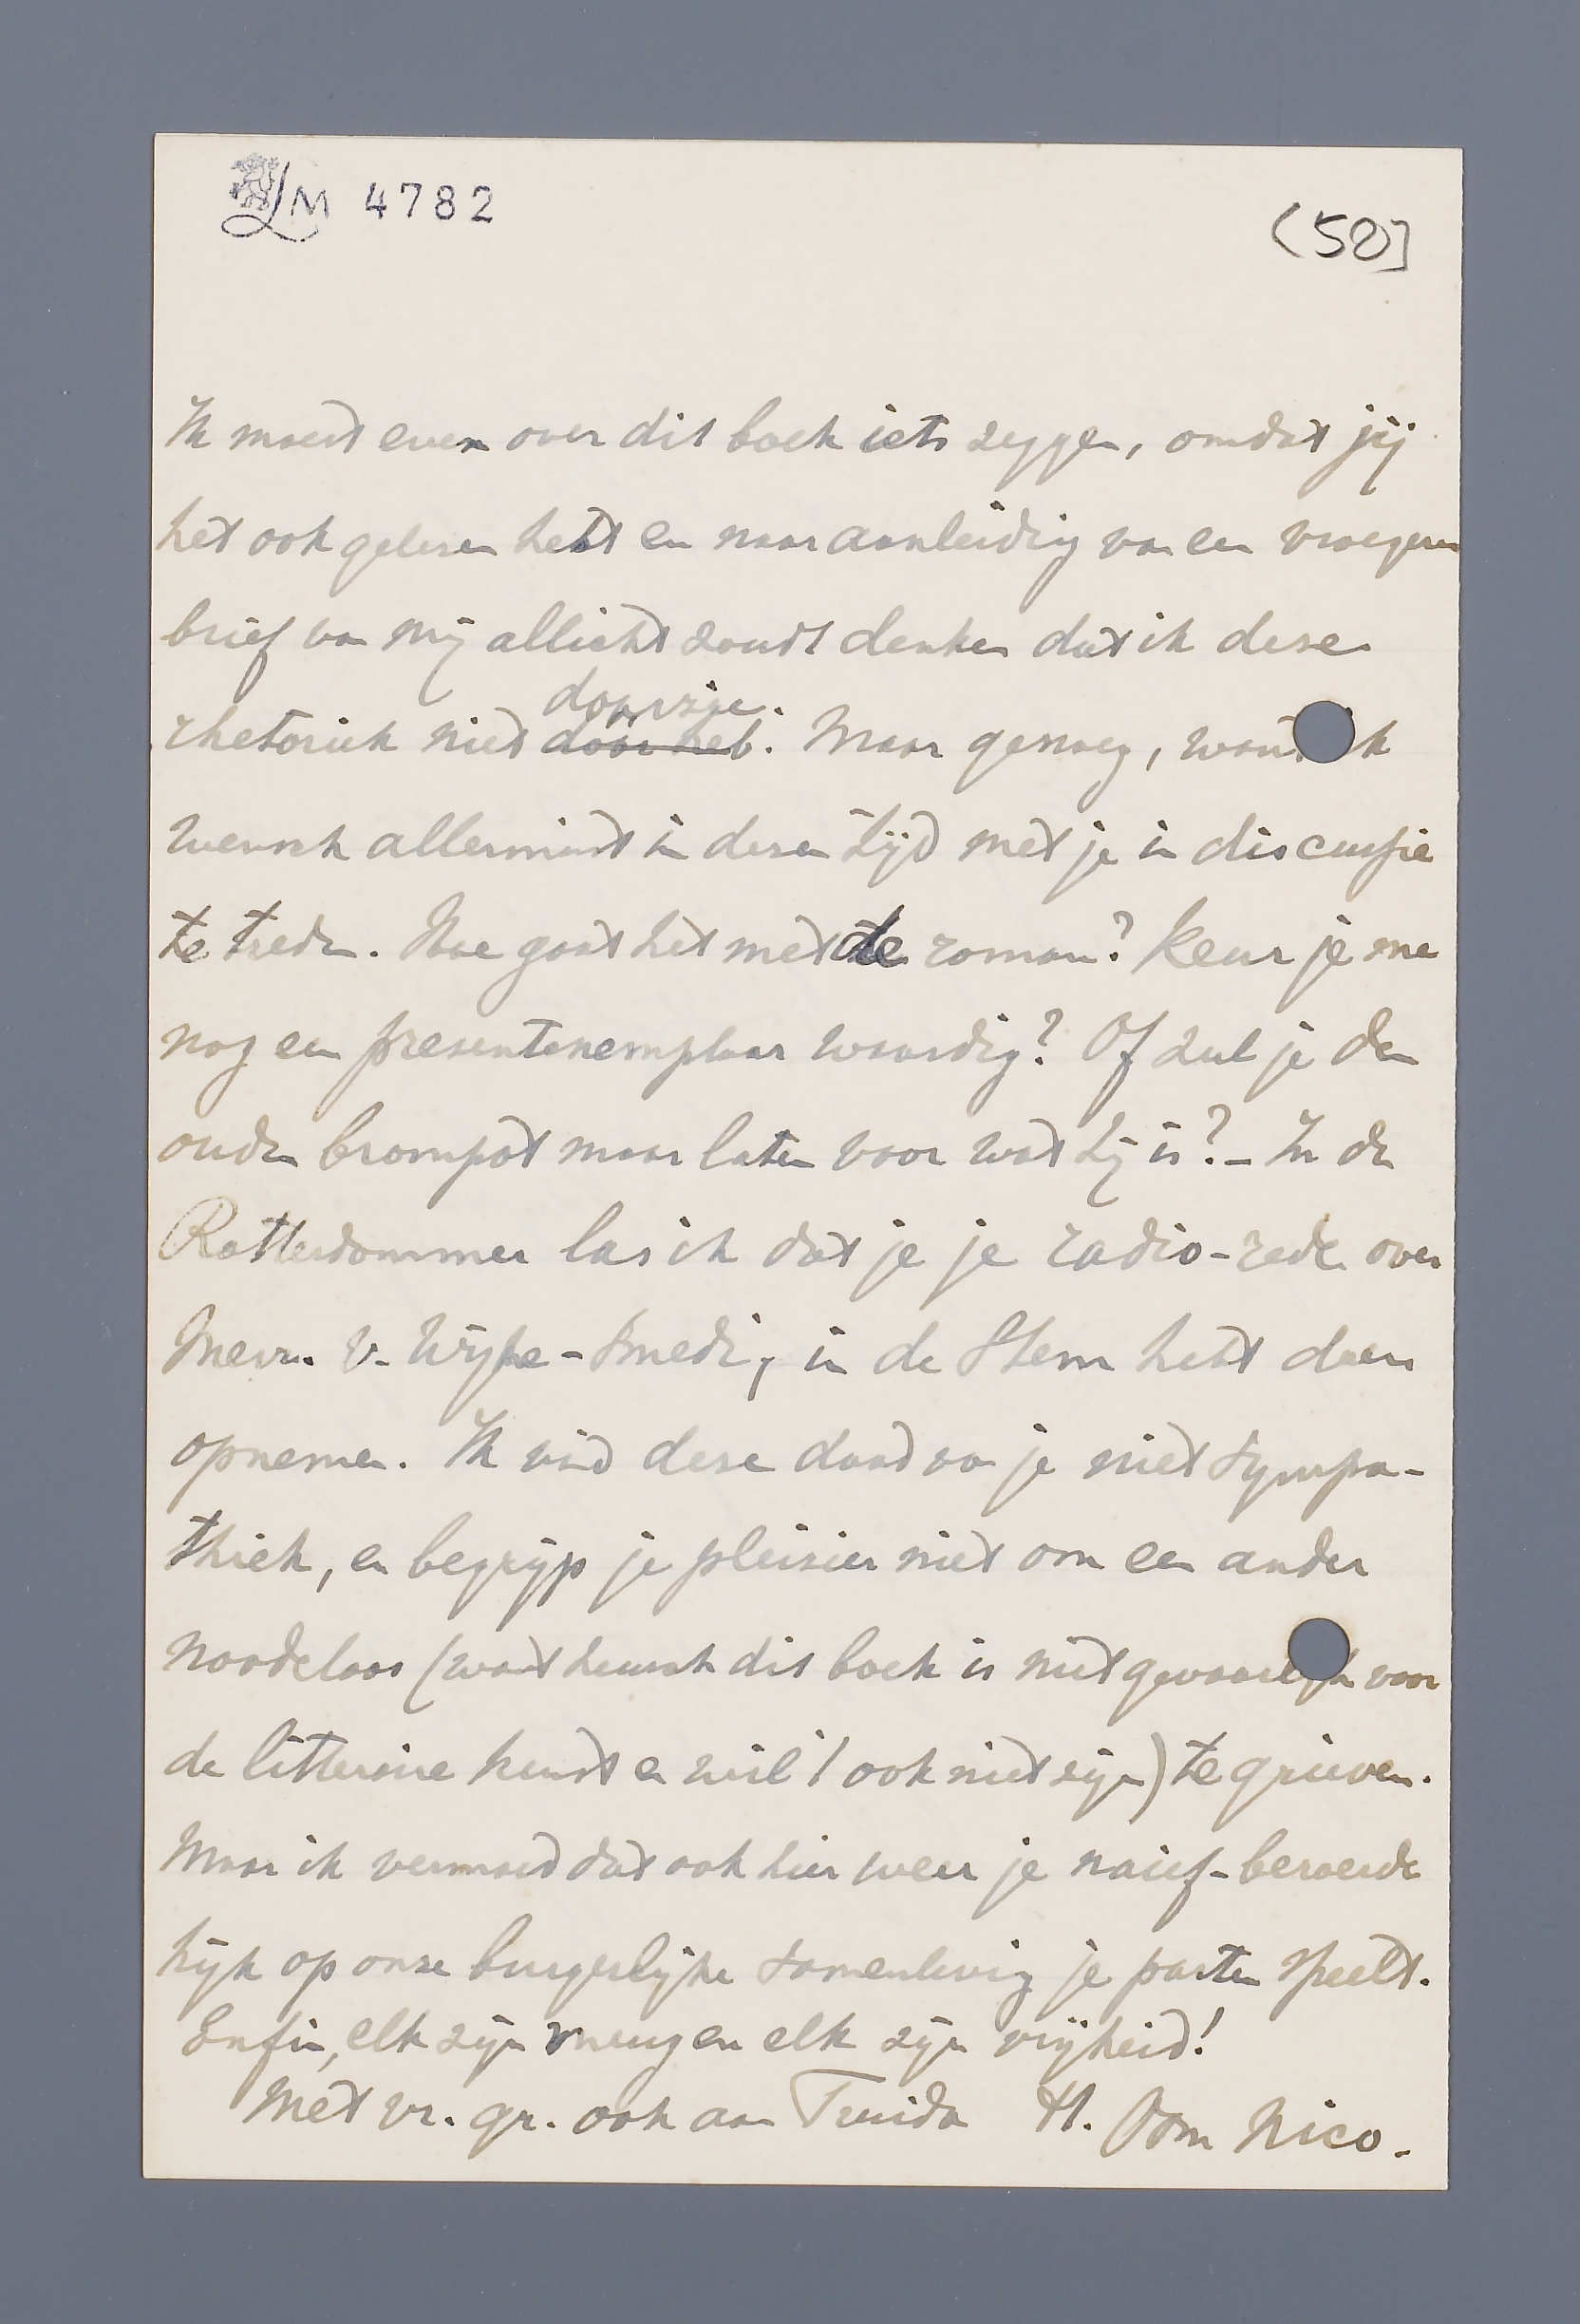 LM 4782
(50]
Ik moest even over dit boek iets zeggen, omdat jij
het ook gelezen hebt en naar aanleiding van een vroegeren
brief van mij allicht zoudt denken dat ik deze
doorzie.
rhetoriek niet door heb. Maar genoeg, want ik
wensch allerminst in dezen tijd met je in discussie
te treden. Hoe gaat het met de roman? Keur je me
nog een presentexemplaar waardig? Of zul je den
ouden brompot maar laten voor wat hij is? – In de
Rotterdammer las ik dat je je radio-rede over
Mevr. v. Wijhe-Smeding in de Stem hebt doen
opnemen. Ik vind deze daad van je niet sympa-
thiek, en begrijp je pleisier niet om een ander
noodeloos (want heusch dit boek is niet gevaarlijk voor
de litteraire kunst en wil 't ook niet zijn) te grieven.
Maar ik vermoed dat ook hier weer je naief-beroerde
kijk op onze burgerlijke samenleving je parten speelt.
Enfin, elk zijn meug en elk zijn vrijheid!
Met vr. gr. ook aan Truida tt. Oom Nico.